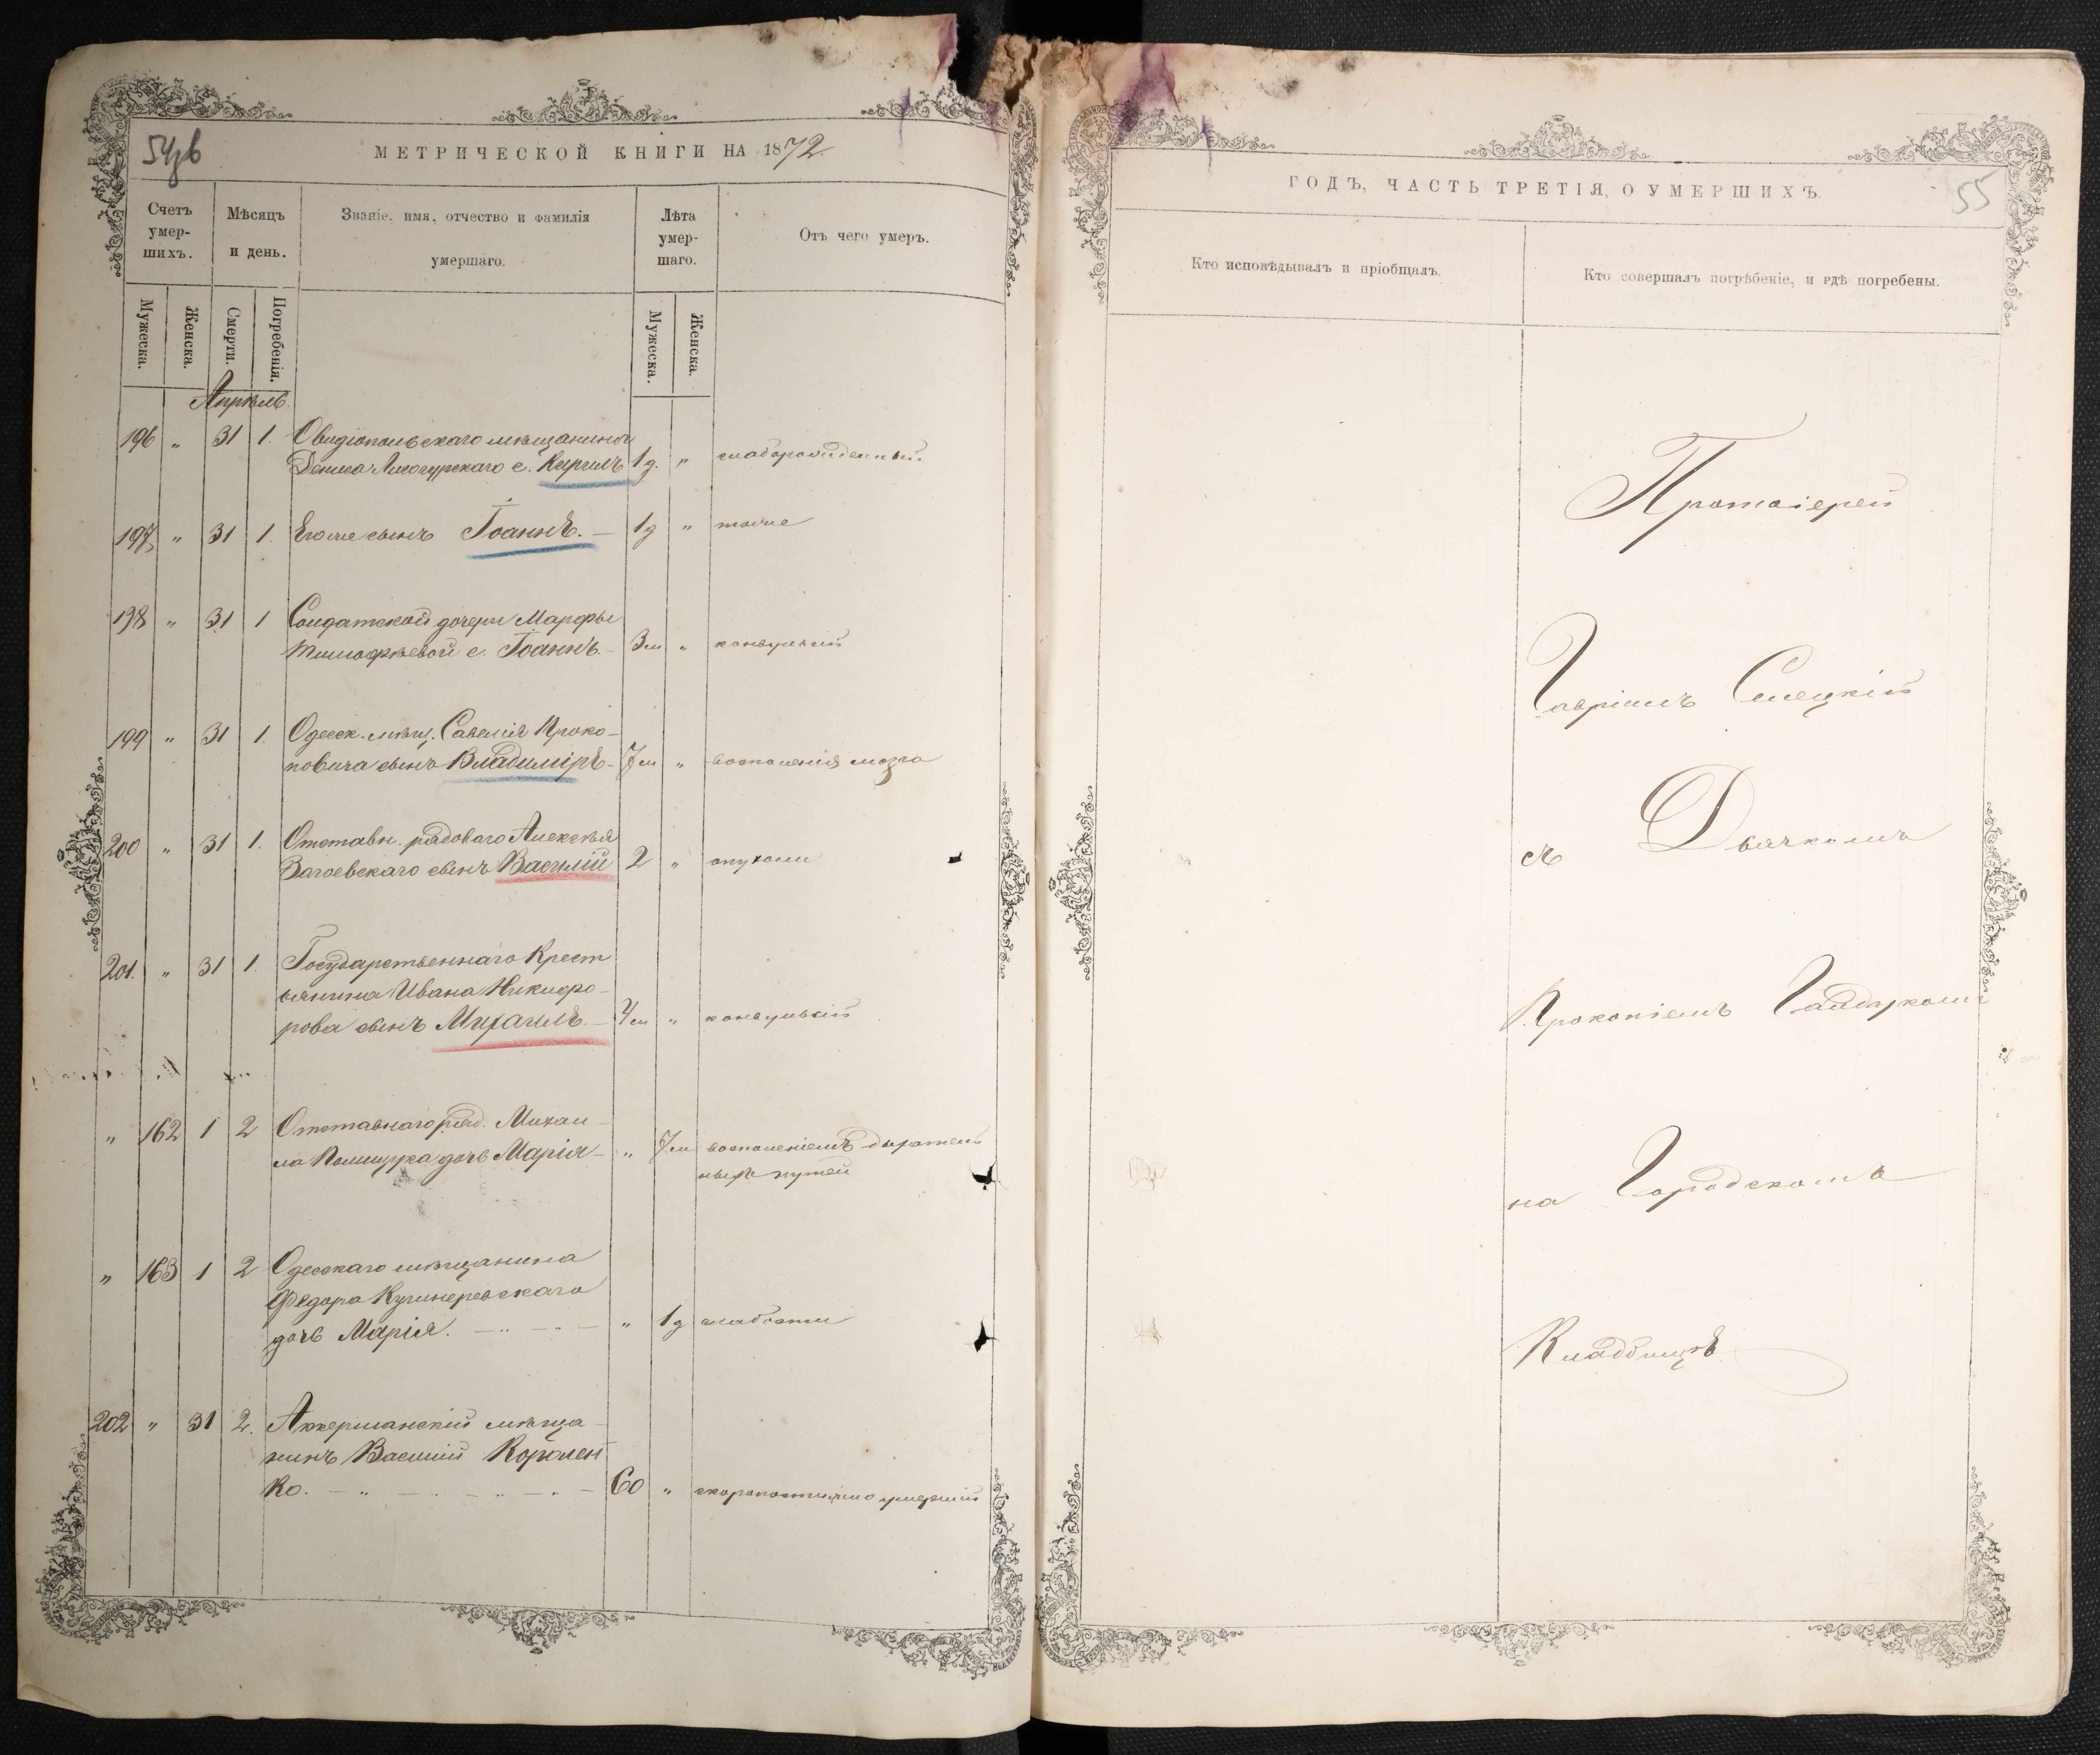 54 об
МЕТРИЧЕСКОЙ КНИГИ НА 1872
Счетъ умер-шихъ.
Мѣсяцъ и день.
Званіе, имя, отчество и фамилія умершаго.
Лѣта умер-шаго.
Отъ чего умеръ.
Мужеска.
Женска.
Смерти.
Погребенія.
Мужеска.
Женска.
Апрѣль
196 " 31 1. Овидіопольскаго мѣщанина
Дениса Лисогурскаго с. Кирилъ 1 д. " слаборожденный
197 " 31 1. Его же сынъ Іоаннъ. — 1 д " тоже
198 " 31 1 Солдатской дочери Марфы
Тимофѣевой с. Іоаннъ. — 3 м " конвульсій
199 " 31 1. Одесск. мѣщ. Савелія Проко-
повича сынъ Владиміръ — 7 м " воспаленія мозга
200 " 31 1. Отставн. рядоваго Алексѣя
Загоевскаго сынъ Василій 2 " опухоли
201. " 31 1. Государственнаго Крест
ьянина Ивана Никифо-
рова сынъ Михаилъ. — 4 м " конвульсій
" 162 1 2 Отставнаго ряд. Михаи-
ла Полищука дочь Марія — " 7 м воспаленіемъ дыхатель
ныхъ путей
" 163 1 2 Одесскаго мѣщанина
Федора Кушнеревскаго
дочь Марія. — " — " — " 1 д слабости
202 " 31 2. Аккерманскій мѣща-
нинъ Василій Королен
ко. — " — " — " — 60 " скоропостижно умершій
ГОДЪ, ЧАСТЬ ТРЕТІЯ, О УМЕРШИХЪ.
55
Кто исповѣдывалъ и пріобщалъ.
Кто совершалъ погрѣбеніе, и гдѣ погребены.
Протоіерей
Гавріилъ Селецкій
съ Дьячкомъ
Прокопіемъ Гайдукомъ
на Городскомъ
Кладбищѣ